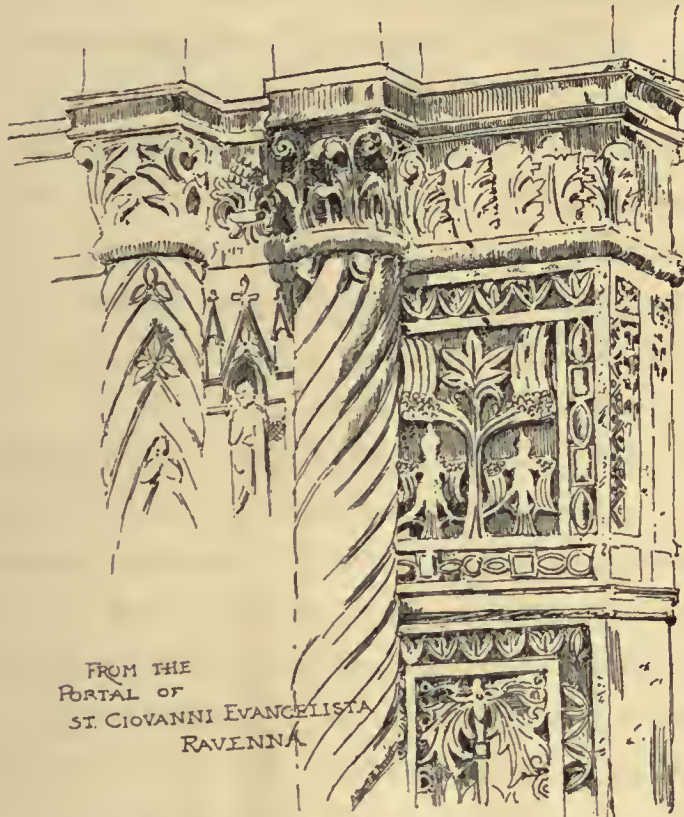 FROM THE
PORTAL OF
ST. GIOVANNI EVANGELISTA
RAVENNA